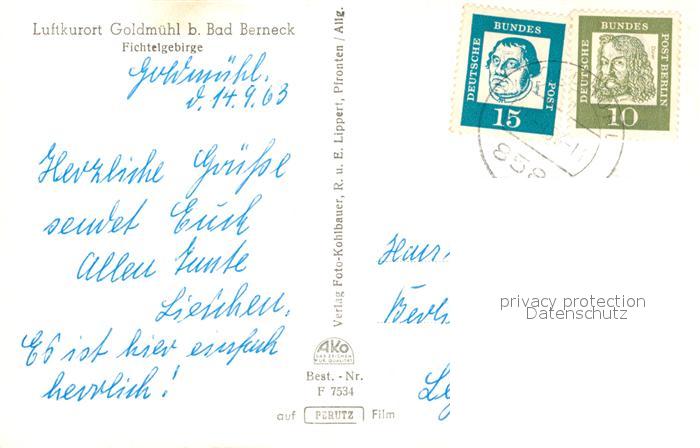 Luftkurort Goldmühl b. Bad Berneck
Fichtelgebirge
Goldmühl,
d. 14.9.63
Herzliche Grüße
sendet Euch
Allen Tante
Lieschen.
Es ist hier einfach
herrlich!
Verlag Foto-Kohlbauer, R. u. E. Lippert, Pfronten / Allg.
AKO
DAS ZEICHEN
FÜR QUALITÄT
Best. - Nr.
F 7534
auf PERUTZ Film
DEUTSCHE BUNDES POST
15
DEUTSCHE BUNDES POST BERLIN
10
858
privacy protection
Datenschutz